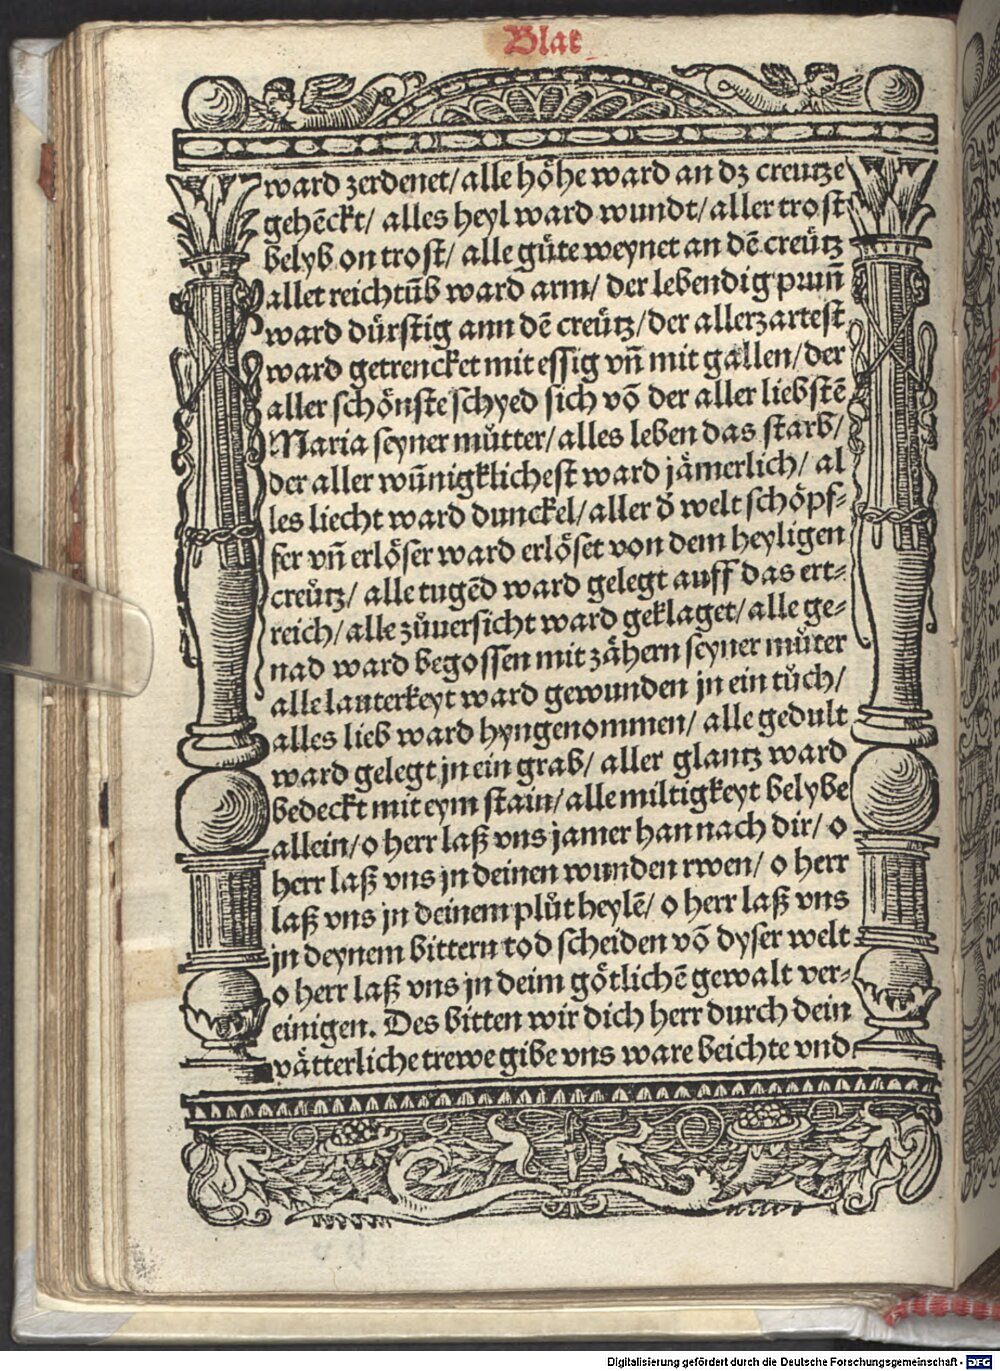 Blat
ward zerdenet/ alle höhe ward an dz creutze
gehēckt/ alles heyl ward wundt/ aller trost
belyb on trost/ alle gůte weynet an dē creütz
allet reichtūb ward arm/ der lebendig prun̄
ward dürstig ann dē creütz/ der allerzartest
ward getrencket mit essig vn̄ mit gallen/ der
aller schönste schyed sich vō der aller liebstē
Maria seyner můtter/ alles leben das starb/
der aller wūnigklichest ward jämerlich/ al
les liecht ward dunckel/ aller d̄ welt schöpf⸗
fer vn̄ erlöser ward erlöset von dem heyligen
creütz/ alle tugēd ward gelegt auff das ert⸗
reich/ alle zůuersicht ward geklaget/ alle ge⸗
nad ward begossen mit zähern seyner můter
alle lauterkeyt ward gewunden jn ein tůch/
alles lieb ward hyngenommen/ alle gedult
ward gelegt jn ein grab/ aller glantz ward
bedeckt mit eym stain/ alle miltigkeyt belybe
allein/ o herr laß vns jamer han nach dir/ o
herr laß vns jn deinen wunden rwen/ o herr
laß vns jn deinem plůt heylē/ o herr laß vns
jn deynem bittern tod scheiden vō dyser welt
o herr laß vns jn deim götlichē gewalt ver⸗
einigen. Des bitten wir dich herr durch dein
vätterliche trewe gibe vns ware beichte vnd
Digitalisierung gefördert durch die Deutsche Forschungsgemeinschaft - DFG